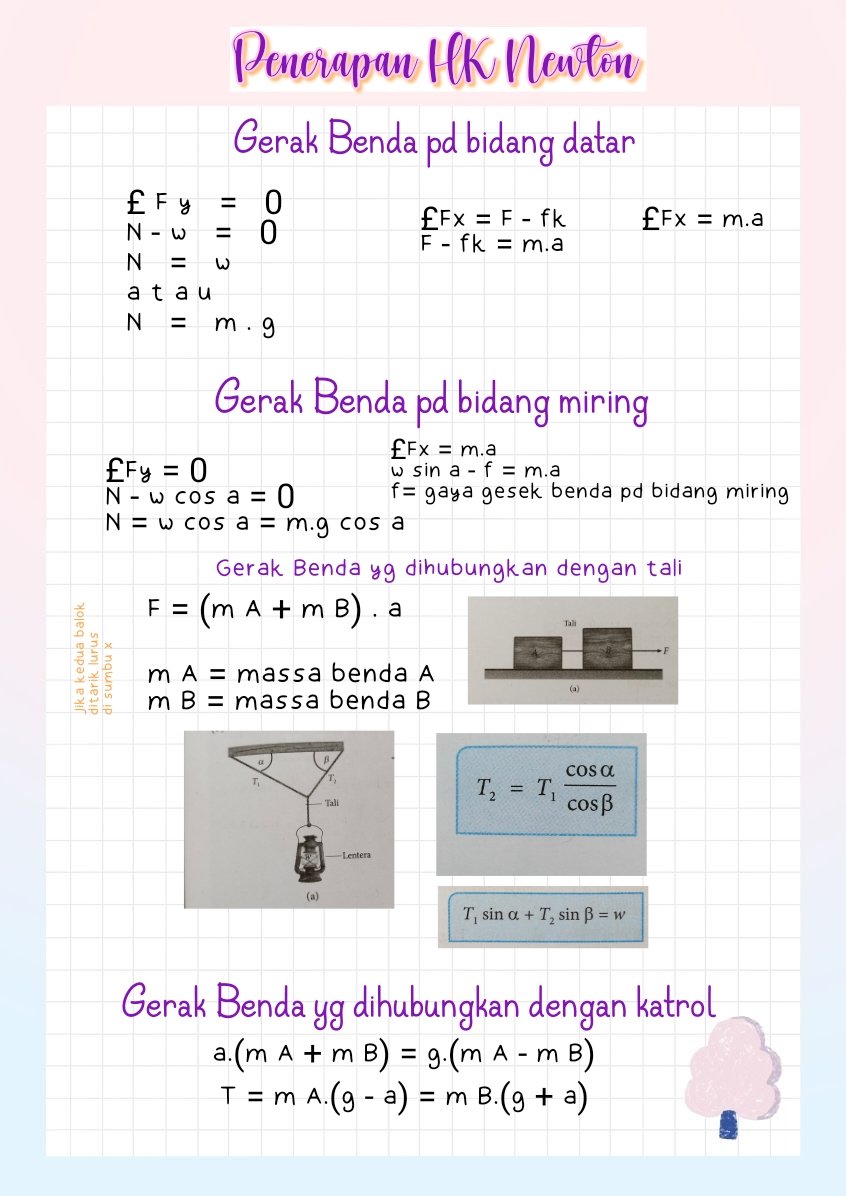 Penerapan HK Newton
Gerak Benda pd bidang datar
£ F y = 0
N - w = 0
N = w
atau
N = m . g
£Fx = F - fk
F - fk = m.a
£Fx = m.a
Gerak Benda pd bidang miring
£Fy = 0
N - w cos a = 0
N = w cos a = m.g cos a
£Fx = m.a
w sin a - f = m.a
f= gaya gesek benda pd bidang miring
Gerak Benda yg dihubungkan dengan tali
Jika kedua balok
ditarik lurus
di sumbu x
F = (m A + m B) . a
m A = massa benda A
m B = massa benda B
Tali
A
B
F
(a)
α
β
T₁
T₂
Tali
w
Lentera
(a)
T₂ = T₁ cos α / cos β
T₁ sin α + T₂ sin β = w
Gerak Benda yg dihubungkan dengan katrol
a.(m A + m B) = g.(m A - m B)
T = m A.(g - a) = m B.(g + a)